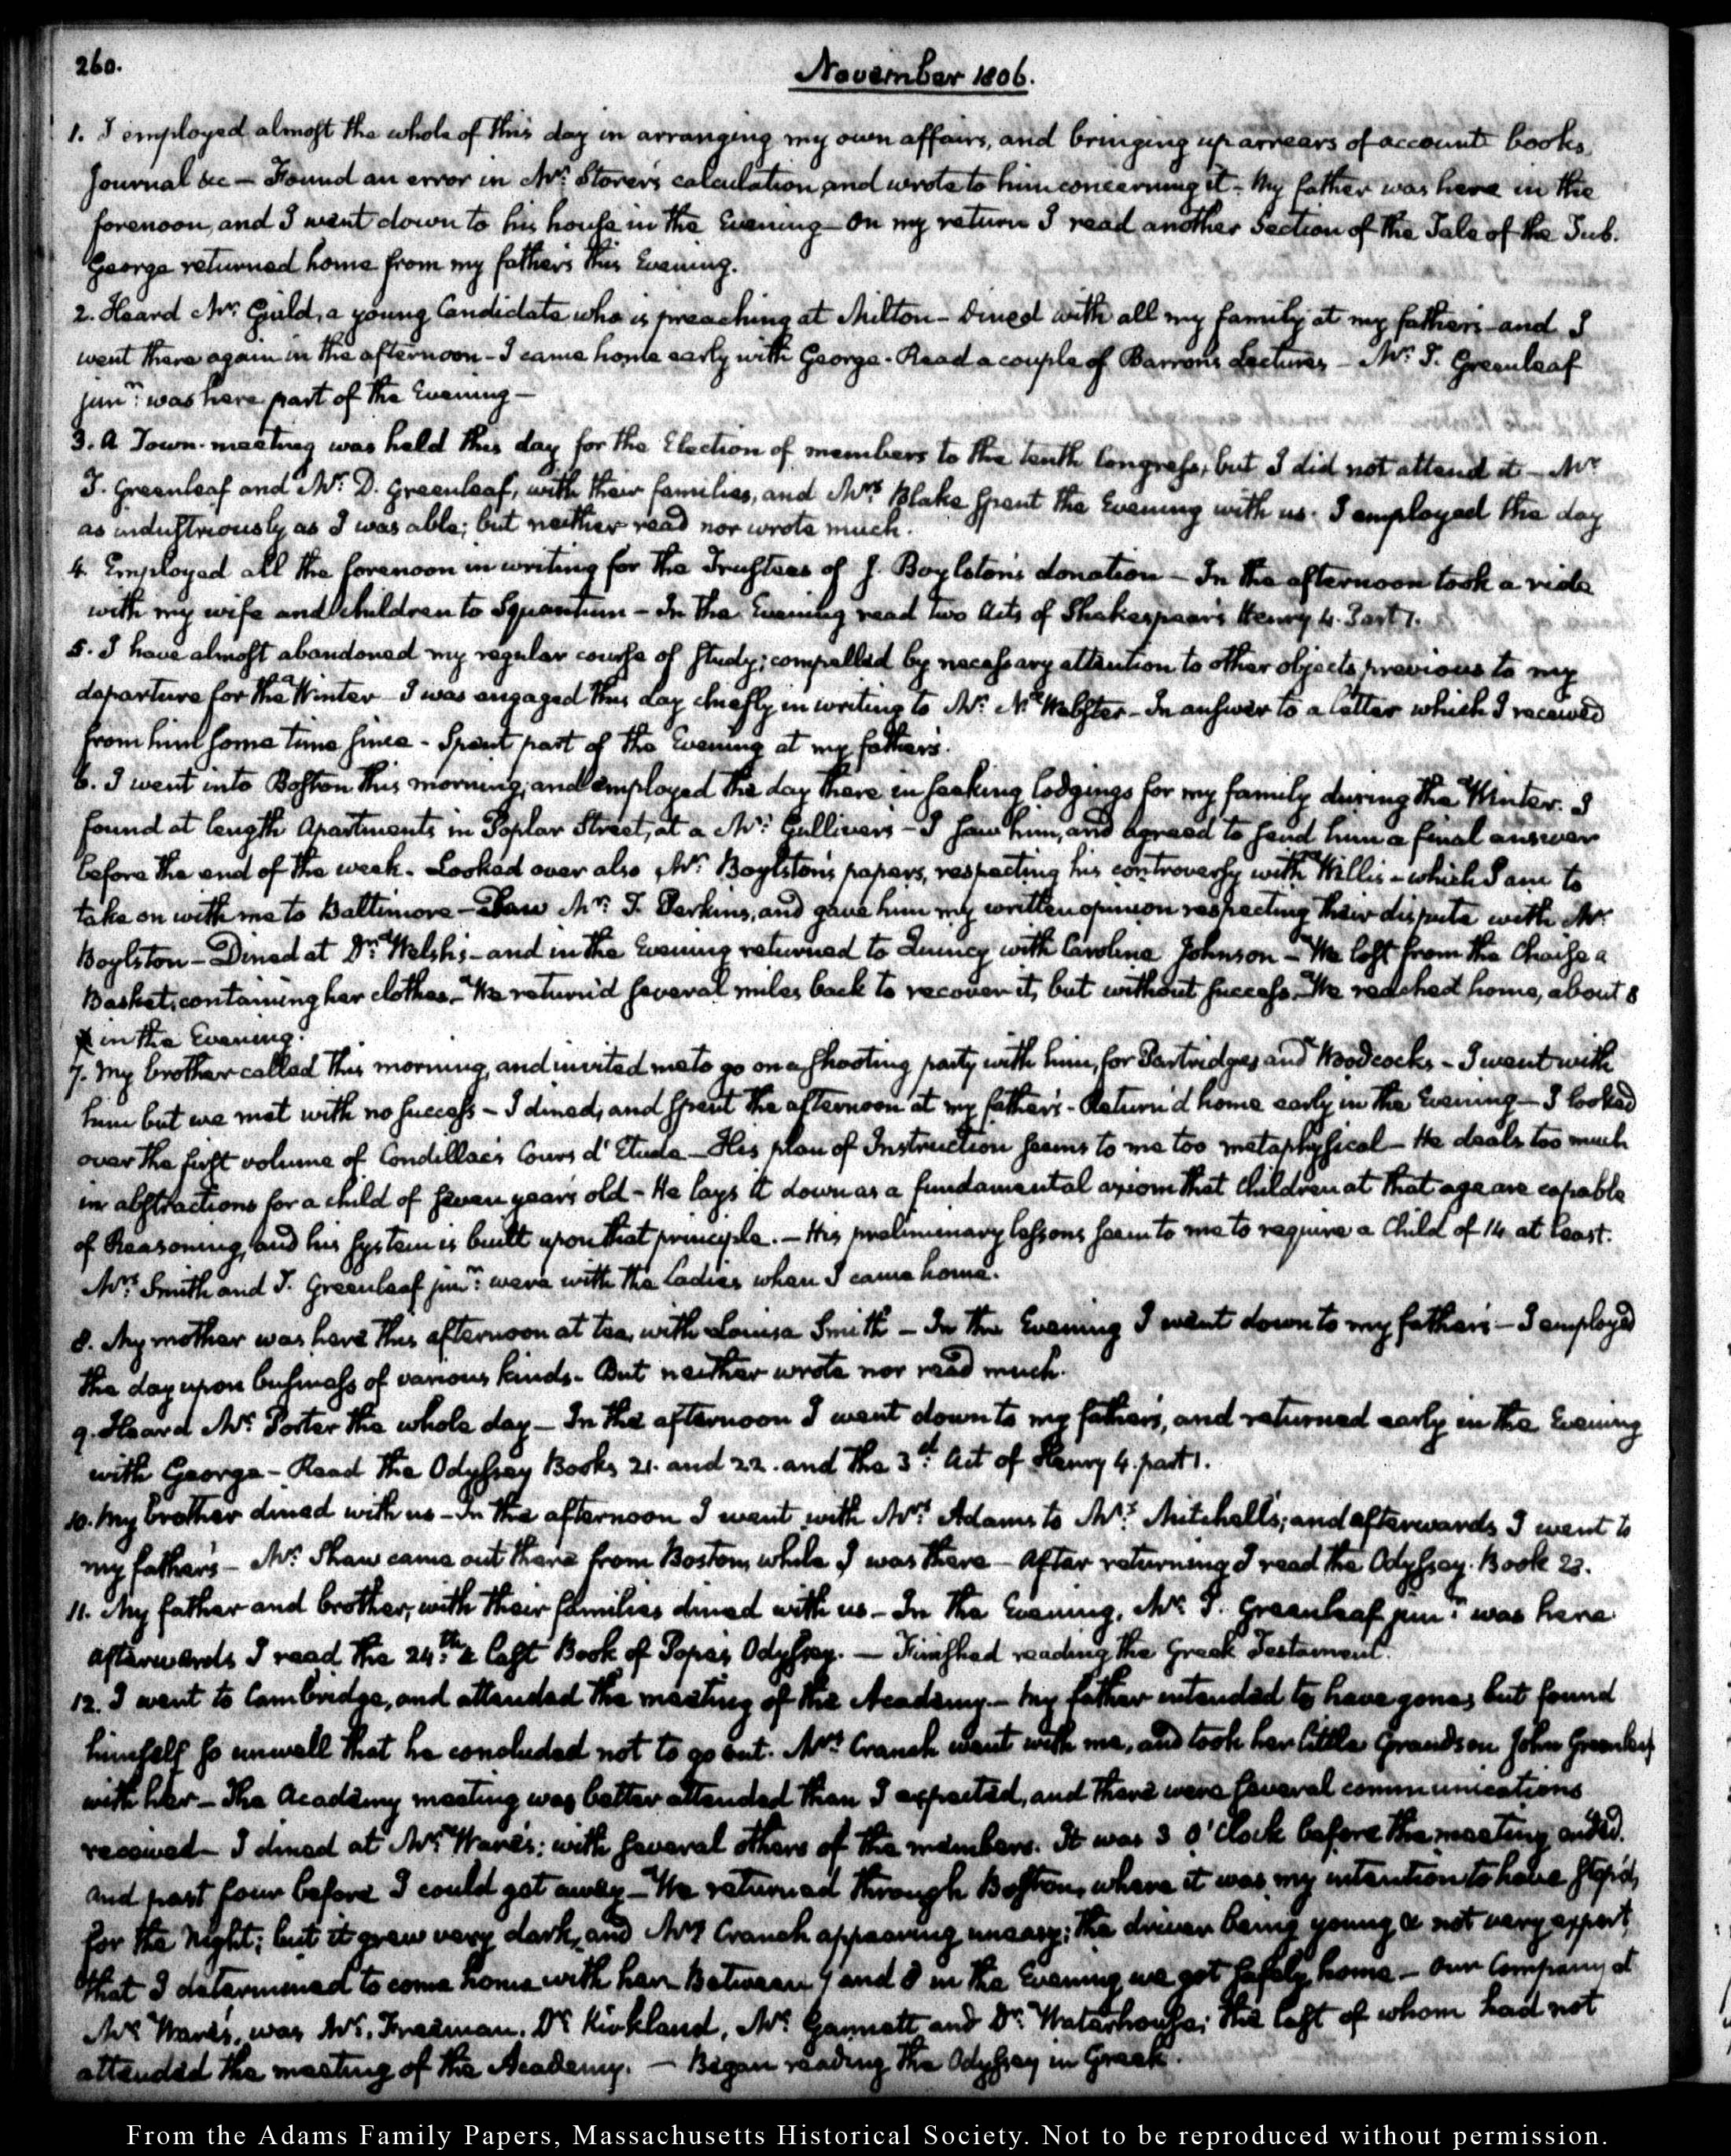 260.
November 1806.
1. I employed almost the whole of this day in arranging my own affairs, and bringing up arrears of account books
Journal &c — Found an error in Mr: Storer's calculation and wrote to him concerning it - My father was here in the
forenoon, and I went down to his house in the Evening — On my return I read another Section of the Tale of the Tub.
George returned home from my father's this Evening.
2. Heard Mr: Guild, a young Candidate who is preaching at Milton — Dined with all my family at my father's — and I
went there again in the afternoon - I came home early with George - Read a couple of Barron's Lectures — Mr: T. Greenleaf
junr: was here part of the Evening —
3. A Town-meeting was held this day for the Election of members to the tenth Congress, but I did not attend it — Mr
T. Greenleaf and Mr: D. Greenleaf, with their families, and Mrs: Blake spent the Evening with us. I employed the day
as industriously as I was able; but neither read nor wrote much.
4. Employed all the forenoon in writing for the Trustees of J. Boylston's donation — In the afternoon took a ride
with my wife and children to Squantum — In the Evening read two Acts of Shakespear's Henry 4. Part 1.
5. I have almost abandoned my regular course of study; compelled by necessary attention to other objects previous to my
departure for the Winter — I was engaged this day chiefly in writing to Mr: N. Webster — In answer to a letter which I received
from him some time since - Spent part of the Evening at my father's.
6. I went into Boston this morning, and employed the day there in seeking lodgings for my family during the Winter. I
found at length Apartments in Poplar Street, at a Mr: Gulliver's — I saw him, and agreed to send him a final answer
before the end of the week. Looked over also Mr: Boylston's papers, respecting his controversy with Willis — which I am to
take on with me to Baltimore — Saw Mr: T. Perkins, and gave him my written opinion respecting their dispute with Mr:
Boylston — Dined at Dr: Welsh's — and in the Evening returned to Quincy with Caroline Johnson — We lost from the Chaise a
Basket, containing her clothes — We return'd several miles back to recover it, but without success. We reached home, about 8
in the Evening.
7. My brother called this morning, and invited me to go on a shooting party with him, for Partridges and Woodcocks — I went with
him but we met with no success — I dined, and spent the afternoon at my father's - Return'd home early in the Evening — I looked
over the first volume of Condillac's Cours d'Etude — His plan of Instruction seems to me too metaphysical — He deals too much
in abstractions for a child of seven years old — He lays it down as a fundamental axiom that children at that age are capable
of Reasoning, and his system is built upon that principle. — His preliminary lessons seem to me to require a Child of 14 at least.
Mrs: Smith and T. Greenleaf junr: were with the Ladies when I came home.
8. My mother was here this afternoon at tea, with Louisa Smith — In the Evening I went down to my father's — I employed
the day upon business of various kinds - But neither wrote nor read much.
9. Heard Mr: Porter the whole day — In the afternoon I went down to my father's, and returned early in the Evening
with George — Read the Odyssey Books 21. and 22. and the 3d: Act of Henry 4. part 1.
10. My brother dined with us — In the afternoon I went with Mrs: Adams to Mrs: Mitchell's; and afterwards I went to
my father's — Mr: Shaw came out there from Boston, while I was there — After returning I read the Odyssey. Book 23.
11. My father and brother, with their families dined with us — In the Evening, Mr: T. Greenleaf junr: was here
afterwards I read the 24th: & last Book of Pope's Odyssey. — Finished reading the Greek Testament.
12. I went to Cambridge, and attended the meeting of the Academy — My father intended to have gone, but found
himself so unwell that he concluded not to go out. Mrs: Cranch went with me, and took her little Grandson John Greenleaf
with her — The Academy meeting was better attended than I expected, and there were several communications
received — I dined at Mr: Ware's; with several others of the members. It was 3 O'Clock before the meeting ended.
and past four before I could get away — We returned through Boston, where it was my intention to have stop'd,
for the Night; but it grew very dark, and Mrs Cranch appearing uneasy; the driver being young & not very expert,
that I determined to come home with her — Between 7 and 8 in the Evening we got safely home — Our Company at
Mr: Ware's, was Mr: Freeman, Dr: Kirkland, Mr: Gannett and Dr: Waterhouse; the last of whom had not
attended the meeting of the Academy. — Began reading the Odyssey in Greek.
From the Adams Family Papers, Massachusetts Historical Society. Not to be reproduced without permission.